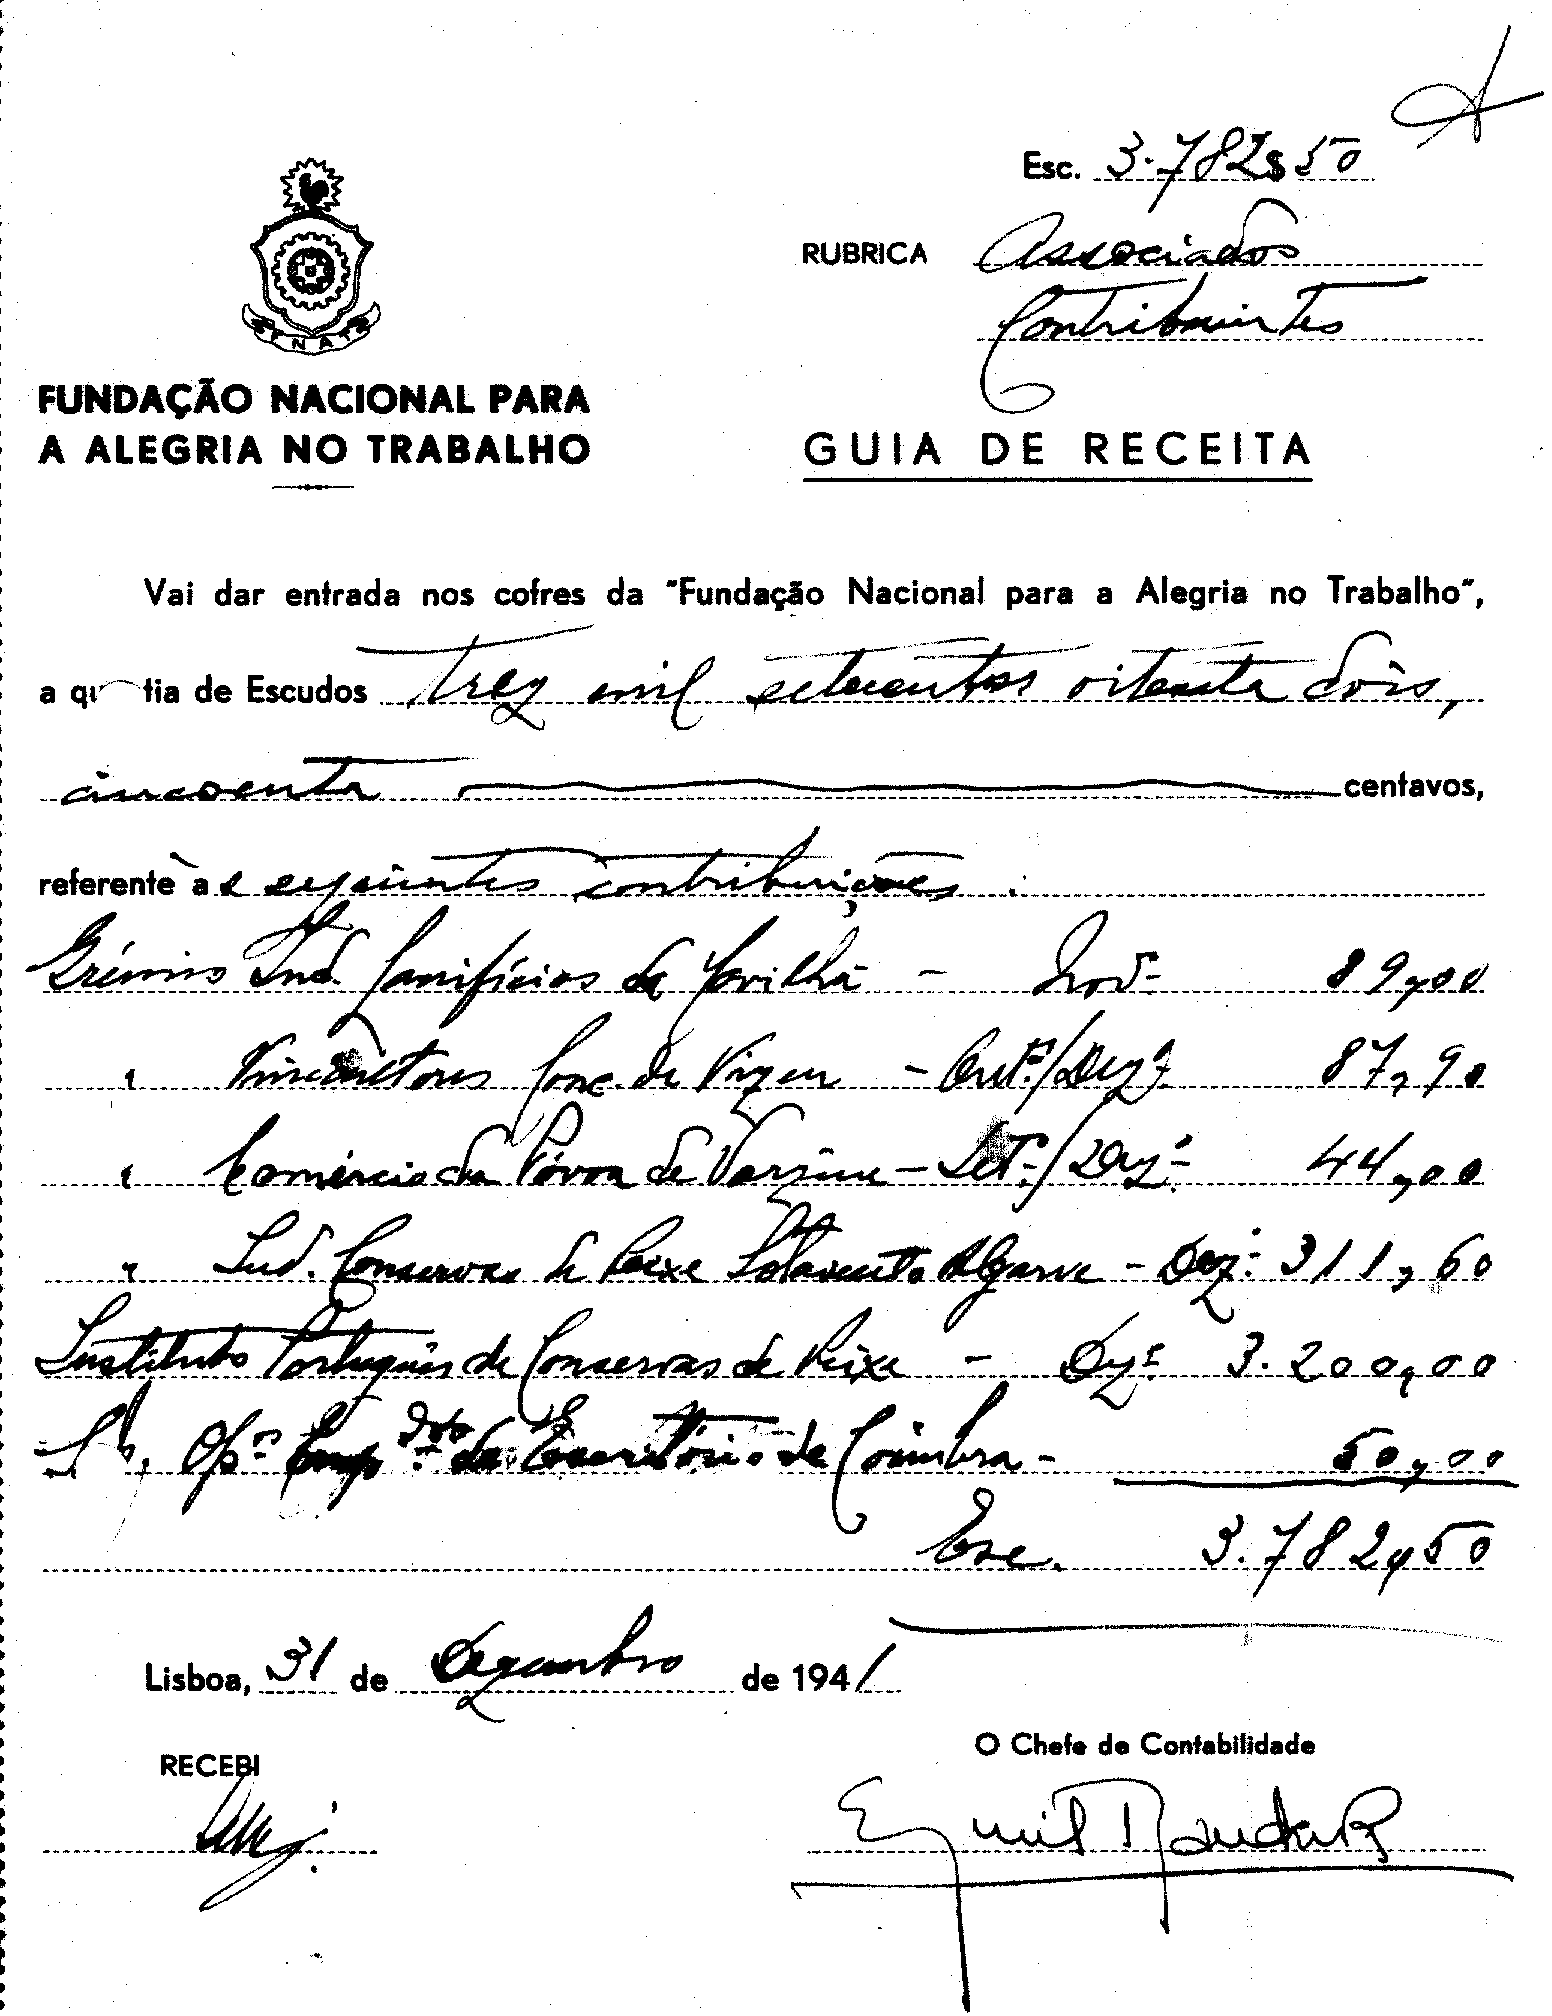 Esc. 3.782$50
RUBRICA Associados
Contribuintes
FNAT
FUNDAÇÃO NACIONAL PARA
A ALEGRIA NO TRABALHO
GUIA DE RECEITA
Vai dar entrada nos cofres da "Fundação Nacional para a Alegria no Trabalho",
a quantia de Escudos trez mil setecentos oitenta dois,
cincoenta centavos,
referente às seguintes contribuições:
Grémio Ind. Lanifícios da Covilhã - Novº 89,00
" Vinicultores Conc. de Vizeu - Outº/Dezº 87,90
" Comércio da Póvoa de Varzim - Setº/Dezº 44,00
" Ind. Conservas de Peixe Sotavento Algarve - Dezº 311,60
Instituto Português de Conservas de Peixe - Dezº 3.200,00
Opº Empº do Escritório de Coimbra - 50,00
Esc. 3.782,50
Lisboa, 31 de Dezembro de 1941
RECEBI
O Chefe de Contabilidade